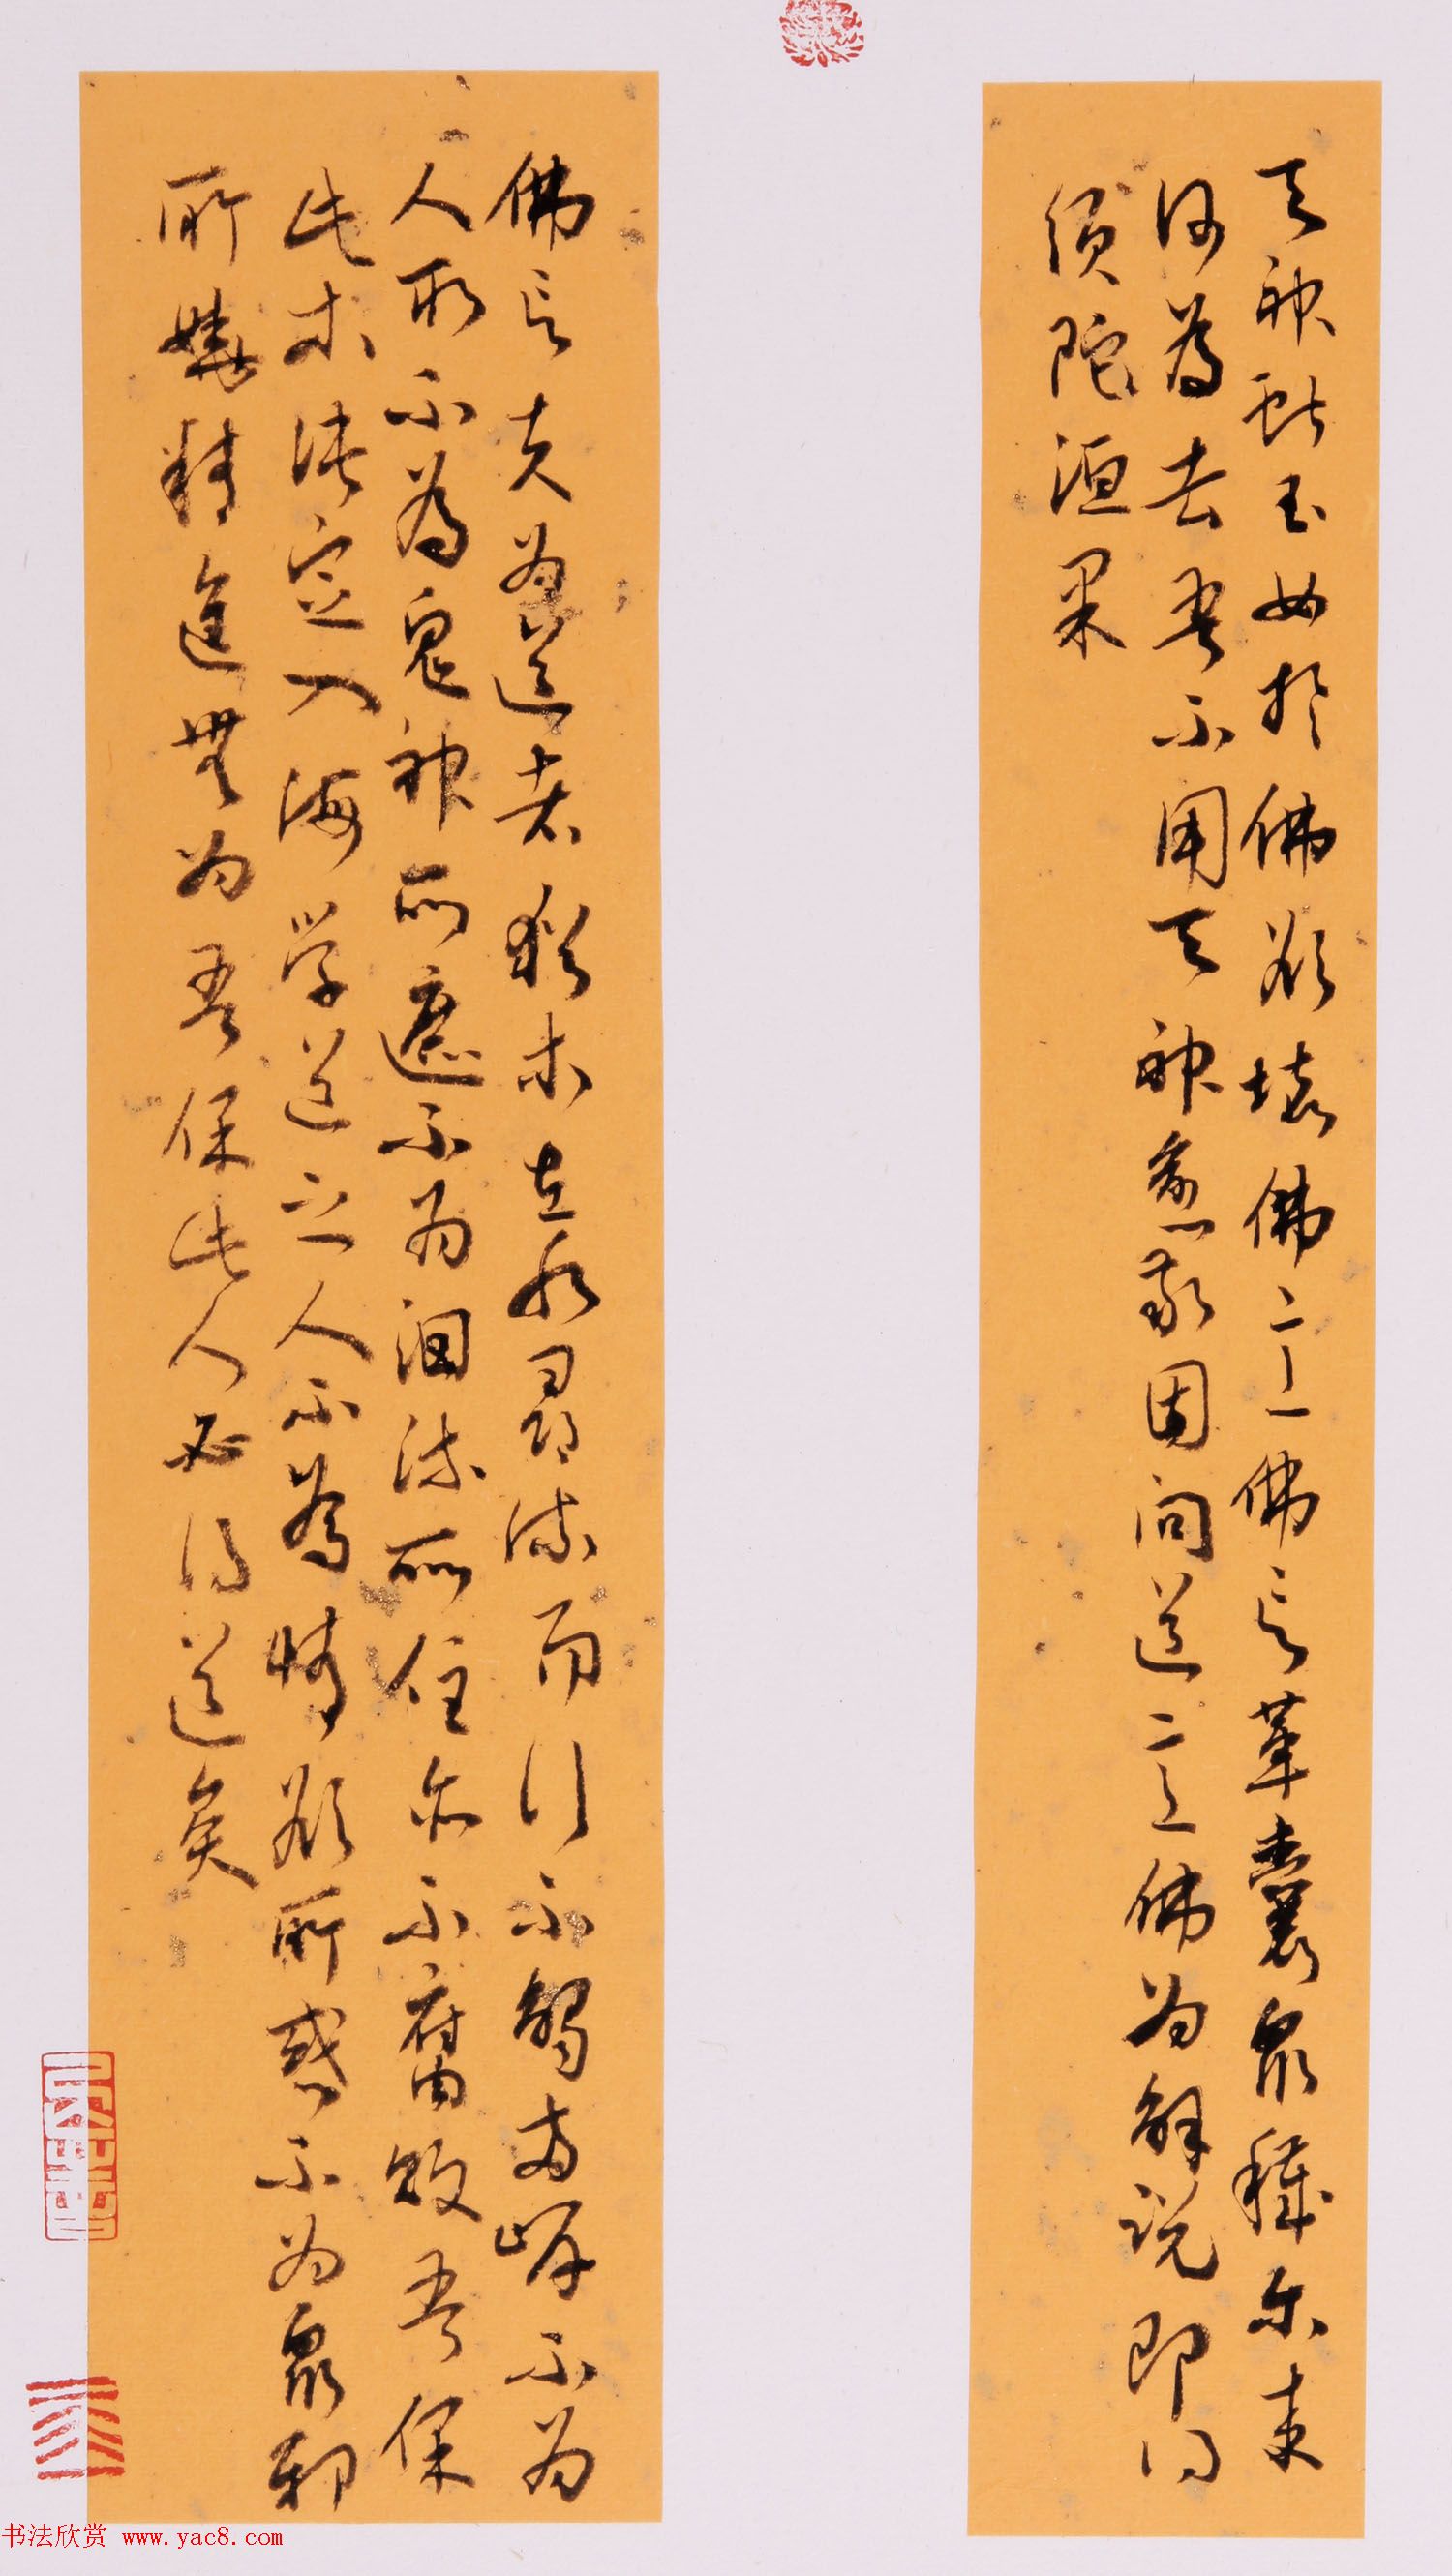 天神獻玉女於佛欲壞佛意佛言革囊眾穢尔来
何為去吾不用天神愈敬因问道意佛为解说即得
须陀洹果
佛言夫為道者猶木在水尋流而行不觸两岸不为
人取不為鬼神所遮不为洄流所住亦不腐敗吾保
此木決定入海学道之人不為情欲所惑不为眾邪
所嬈精進無为吾保此人必得道矣
书法欣赏 www.yac8.com